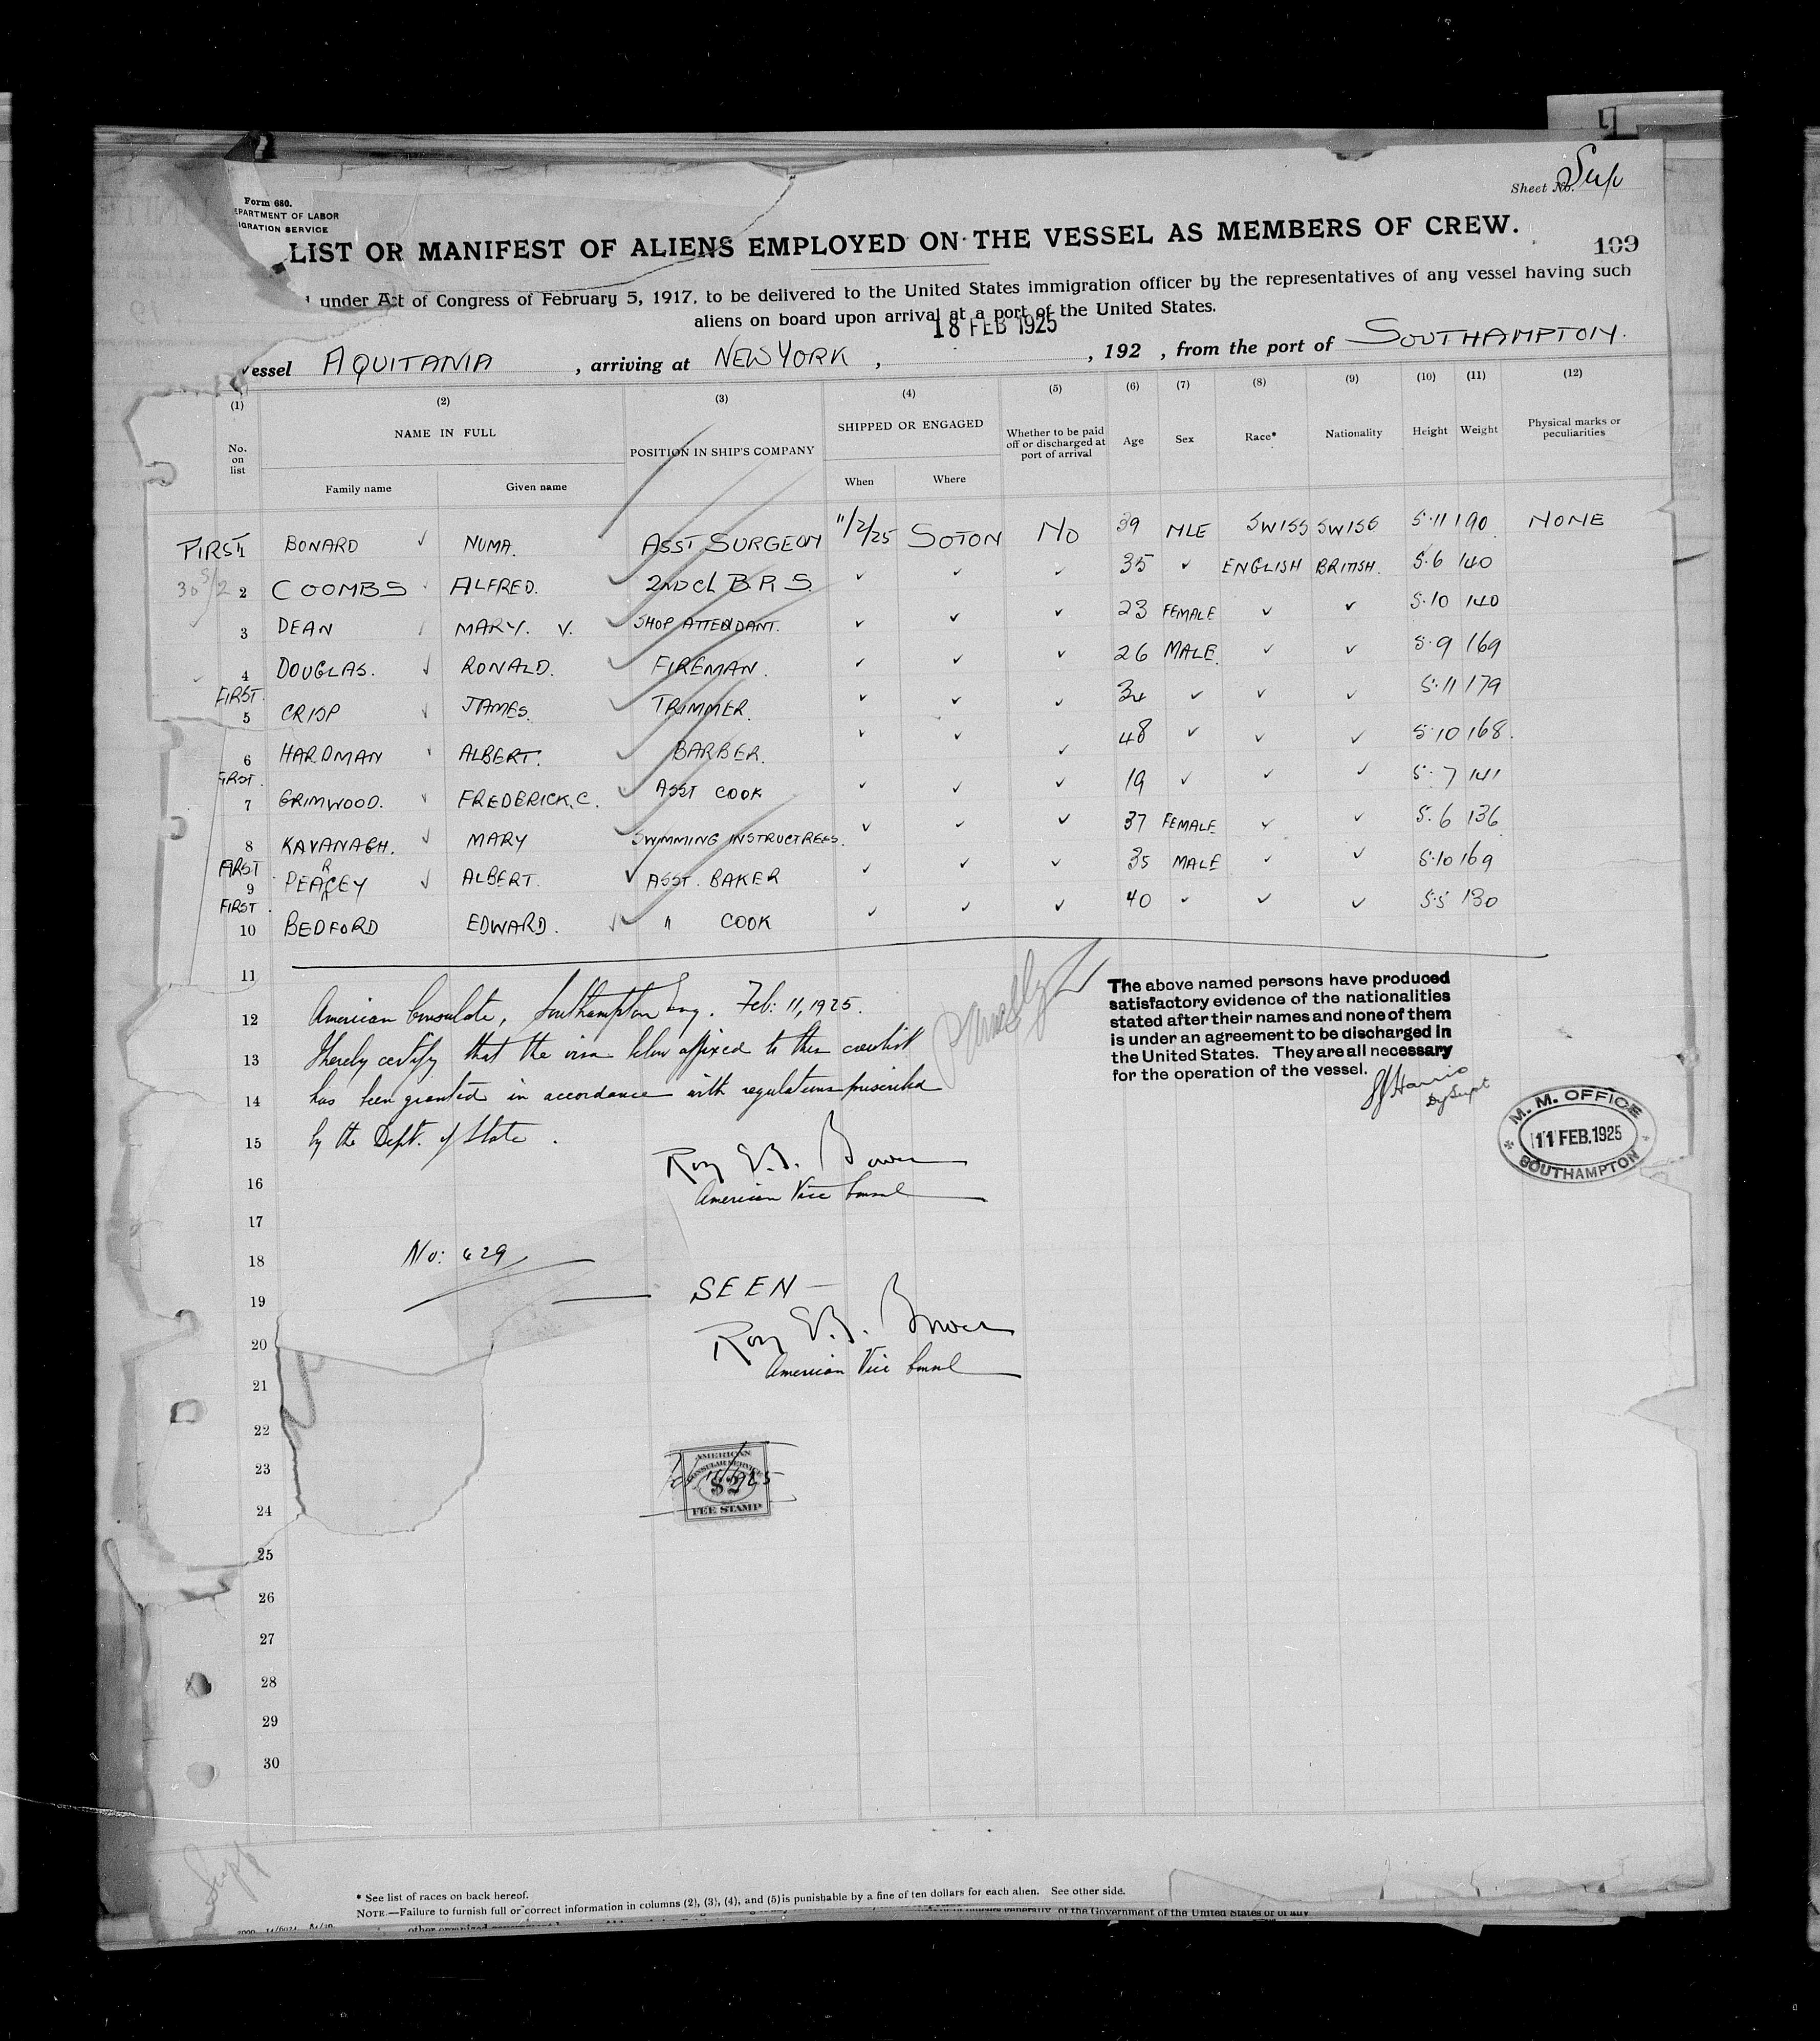 Sheet No. Sup
Form 680.
EPARTMENT OF LABOR
IGRATION SERVICE
LIST OR MANIFEST OF ALIENS EMPLOYED ON THE VESSEL AS MEMBERS OF CREW.
109
under Act of Congress of February 5, 1917, to be delivered to the United States immigration officer by the representatives of any vessel having such
aliens on board upon arrival at a port of the United States.
18 FEB 1925
Vessel AQUITANIA , arriving at NEW YORK , , 192 , from the port of SOUTHAMPTON.
(1) (2) (3) (4) (5) (6) (7) (8) (9) (10) (11) (12)
No. on list NAME IN FULL POSITION IN SHIP'S COMPANY SHIPPED OR ENGAGED Whether to be paid off or discharged at port of arrival Age Sex Race* Nationality Height Weight Physical marks or peculiarities
Family name Given name When Where
FIRST 1 BONARD ✓ NUMA. ASST SURGEON 11/2/25 SOTON NO 39 MLE SWISS SWISS 5.11 190 NONE
2 COOMBS ALFRED. ✓ 2ND CL B.R.S. ✓ ✓ ✓ 35 ✓ ENGLISH BRITISH. 5.6 140
3 DEAN ✓ MARY. V. ✓ SHOP ATTENDANT. ✓ ✓ ✓ 23 FEMALE ✓ ✓ 5.10 140
4 DOUGLAS. ✓ RONALD. ✓ FIREMAN. ✓ ✓ ✓ 26 MALE. ✓ ✓ 5.9 169
FIRST.
5 CRISP ✓ JAMES. ✓ TRIMMER. ✓ ✓ ✓ 34 ✓ ✓ ✓ 5.11 179
6 HARDMAN ✓ ALBERT. ✓ BARBER. ✓ ✓ ✓ 48 ✓ ✓ ✓ 5.10 168.
FIRST.
7 GRIMWOOD. ✓ FREDERICK.C. ✓ ASST COOK ✓ ✓ ✓ 19 ✓ ✓ ✓ 5.7 141
8 KAVANAGH. ✓ MARY ✓ SWIMMING INSTRUCTRESS. ✓ ✓ ✓ 37 FEMALE ✓ ✓ 5.6 136
FIRST
9 PEARCEY ✓ ALBERT. ✓ ASST. BAKER ✓ ✓ ✓ 35 MALE ✓ ✓ 5.10 169
FIRST.
10 BEDFORD EDWARD. ✓ " COOK ✓ ✓ ✓ 40 ✓ ✓ ✓ 5.5 130
11
12 American Consulate, Southampton Eng. Feb: 11, 1925.
13 I hereby certify that the visa below affixed to this crewlist
14 has been granted in accordance with regulations prescribed
15 by the Dept. of State.
The above named persons have produced
satisfactory evidence of the nationalities
stated after their names and none of them
is under an agreement to be discharged in
the United States. They are all necessary
for the operation of the vessel.
Harris
Dy Supt
M. M. OFFICE
11 FEB. 1925
SOUTHAMPTON
Roy E.B. Bower
16 American Vice Consul
17
18 No: 629
19 SEEN —
20 Roy E.B. Bower
21 American Vice Consul
22
23
24
AMERICAN
CONSULAR SERVICE
$2
FEE STAMP
Feb 11/1925
25
26
27
28
29
30
Supp
* See list of races on back hereof.
NOTE.—Failure to furnish full or correct information in columns (2), (3), (4), and (5) is punishable by a fine of ten dollars for each alien. See other side.
of the Government of the United States or of any
other organized government